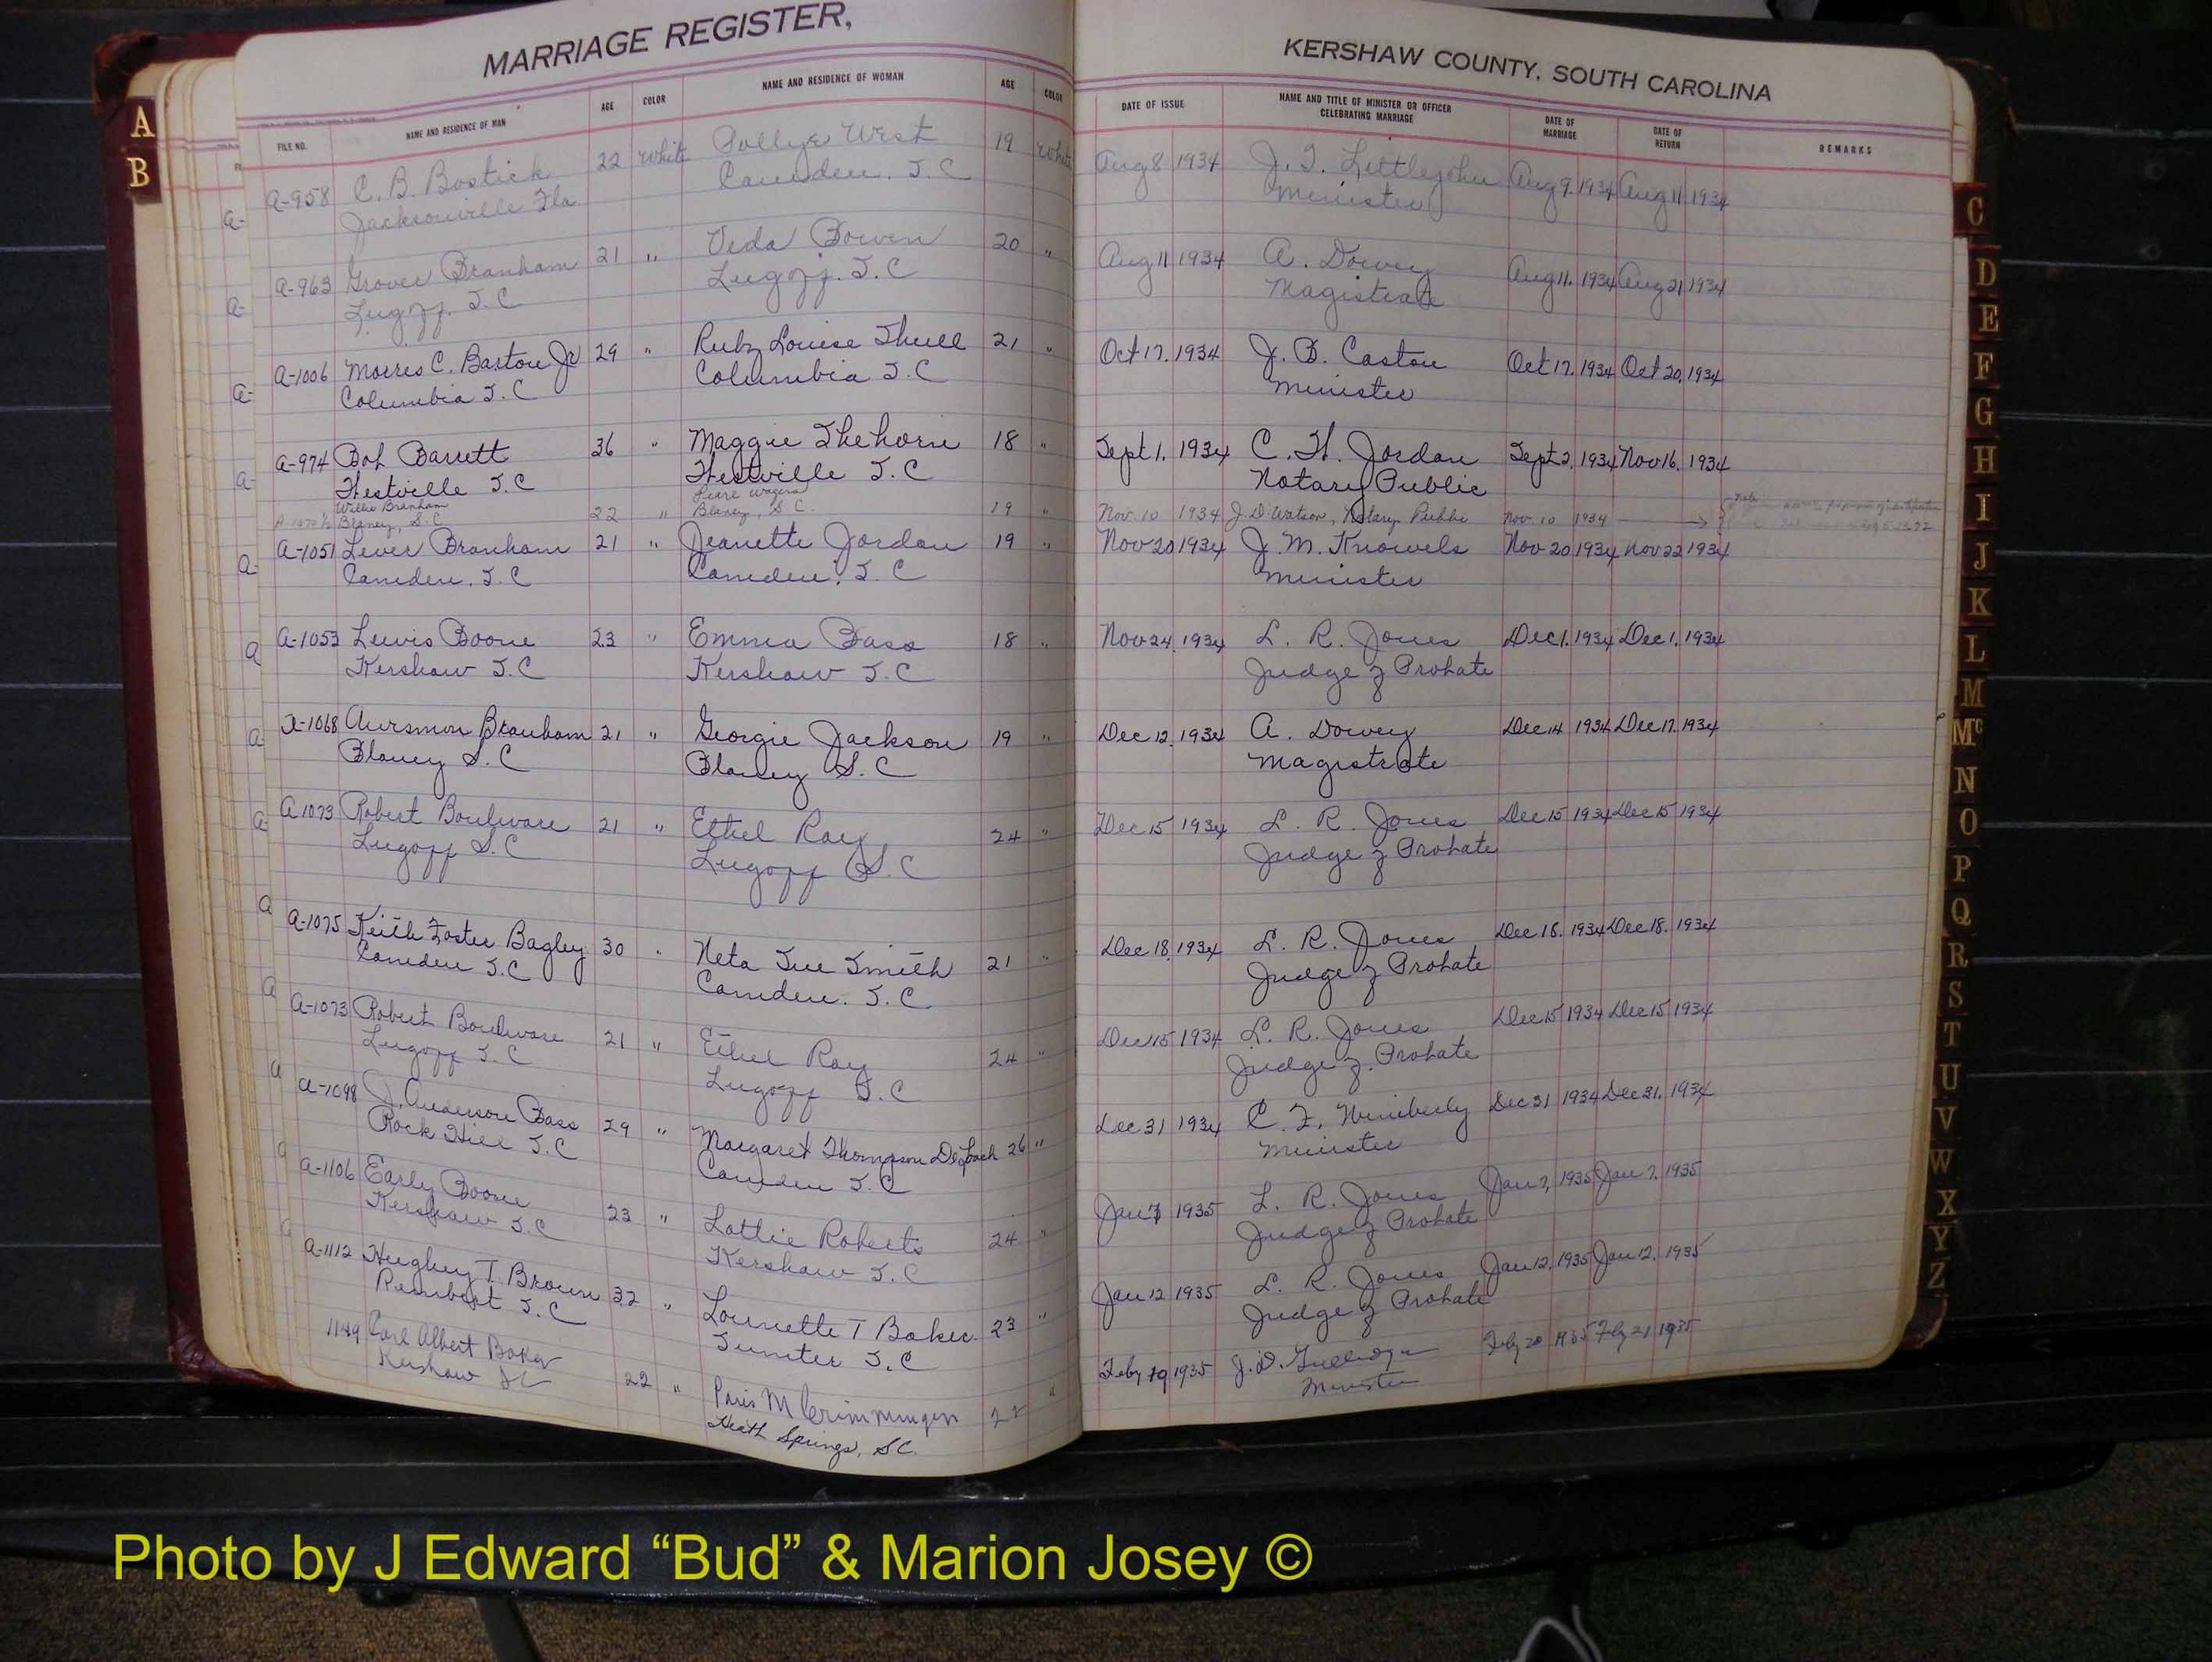 MARRIAGE REGISTER,
KERSHAW COUNTY, SOUTH CAROLINA
FILE NO. NAME AND RESIDENCE OF MAN AGE COLOR NAME AND RESIDENCE OF WOMAN AGE COLOR DATE OF ISSUE NAME AND TITLE OF MINISTER OR OFFICER CELEBRATING MARRIAGE DATE OF MARRIAGE DATE OF RETURN REMARKS
A-958 C. B. Bostick 22 White Pollye West 19 White Aug 8 1934 J. T. Littlejohn Aug 9. 1934 Aug 11 1934
Jacksonville Fla Camden. S. C Minister
A-963 Grover Branham 21 " Veda Bowen 20 " Aug 11 1934 A. Dowey Aug 11. 1934 Aug 21 1934
Lugoff. S. C Lugoff. S. C Magistrate
A-1006 Morris C. Barton Jr 29 " Ruby Louise Shull 21 " Oct 17. 1934 J. B. Caston Oct 17. 1934 Oct 20, 1934
Columbia S. C Columbia S. C Minister
A-974 Bob Barrett 36 " Maggie 18 " Sept 1. 1934 C. H. Jordan Sept 2, 1934 Nov 16. 1934
Westville S. C Westville S. C Notary Public
Willie Branham Pearl
Blaney, S.C. 22 " Blaney, S. C. 19 " Nov. 10 1934 J. D. Watson, Notary Public Nov. 10 1934
A-1051 Lever Branham 21 " Jeanette Jordan 19 " Nov 20 1934 J. M. Knowels Nov 20 1934 Nov 22 1934
Camden, S. C Camden, S. C Minister
A-1053 Lewis Boone 23 " Emma Bass 18 " Nov 24, 1934 L. R. Jones Dec 1. 1934 Dec 1, 1934
Kershaw S. C Kershaw S. C Judge of Probate
A-1068 Aursmon Branham 21 " Georgie Jackson 19 " Dec 12, 1934 A. Dowey Dec 14 1934 Dec 17. 1934
Blaney S. C Blaney S. C Magistrate
A 1073 Robert Boulware 21 " Ethel Ray 24 " Dec 15 1934 L. R. Jones Dec 15 1934 Dec 15 1934
Lugoff S. C Lugoff S. C Judge of Probate
A-1075 Keith Foster Bagley 30 " Neta Sue Smith 21 " Dec 18, 1934 L. R. Jones Dec 18. 1934 Dec 18. 1934
Camden S. C Camden. S. C Judge of Probate
A-1073 Robert Boulware 21 " Ethel Ray 24 " Dec 15 1934 L. R. Jones Dec 15 1934 Dec 15 1934
Lugoff S. C Lugoff S. C Judge of Probate
A-1098 J. Anderson Bass 29 " Margaret Thompson DeLoach 26 " Dec 31 1934 C. F. Wimberly Dec 31 1934 Dec 31. 1934
Rock Hill S. C Camden S. C Minister
A-1106 Early Boone 23 " Lottie Roberts 24 " Jan 7 1935 L. R. Jones Jan 7, 1935 Jan 7. 1935
Kershaw S. C Kershaw S. C Judge of Probate
A-1112 Hughey T. Brown 32 " Lounette T Baker 23 " Jan 12 1935 L. R. Jones Jan 12, 1935 Jan 12. 1935
Rembert S. C Sumter S. C Judge of Probate
1149 Carl Albert Baker 22 " Paris M 22 " Feby 19 1935 J. D. Feby 20 1935 Feby 21 1935
Kershaw SC Heath Springs, SC. Minister
A
B
C
D
E
F
G
H
I
J
K
L
M
Mc
N
O
P
Q
R
S
T
U
V
W
X
Y
Z
Photo by J Edward “Bud” & Marion Josey ©